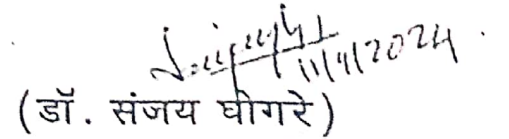 11/4/2024
(डॉ. संजय घोगरे)